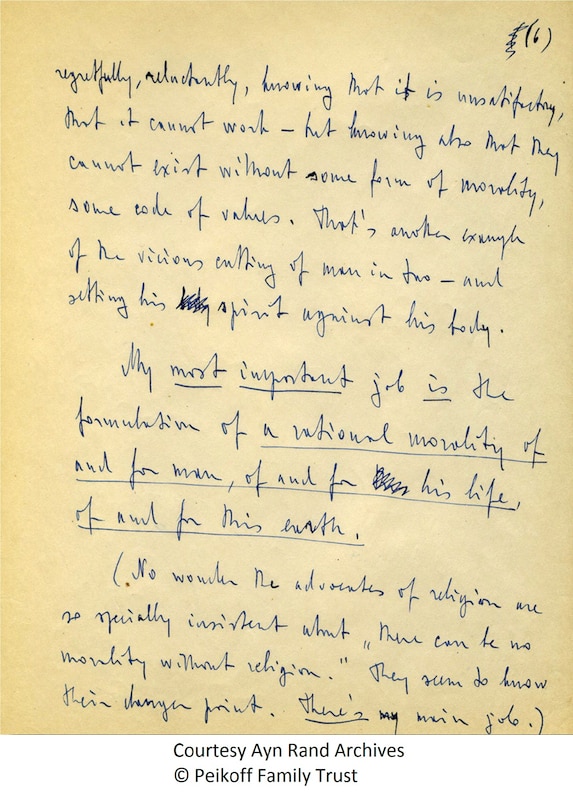 (6)
regretfully, reluctantly, knowing that it is unsatisfactory,
that it cannot work – but knowing also that they
cannot exist without some form of morality,
some code of values. That's another example
of the vicious cutting of man in two – and
setting his spirit against his body.
My most important job is the
formulation of a rational morality of
and for man, of and for his life,
of and for this earth.
(No wonder the advocates of religion are
so specially insistent about „there can be no
morality without religion." They seem to know
their danger point. There's my main job.)
Courtesy Ayn Rand Archives
© Peikoff Family Trust